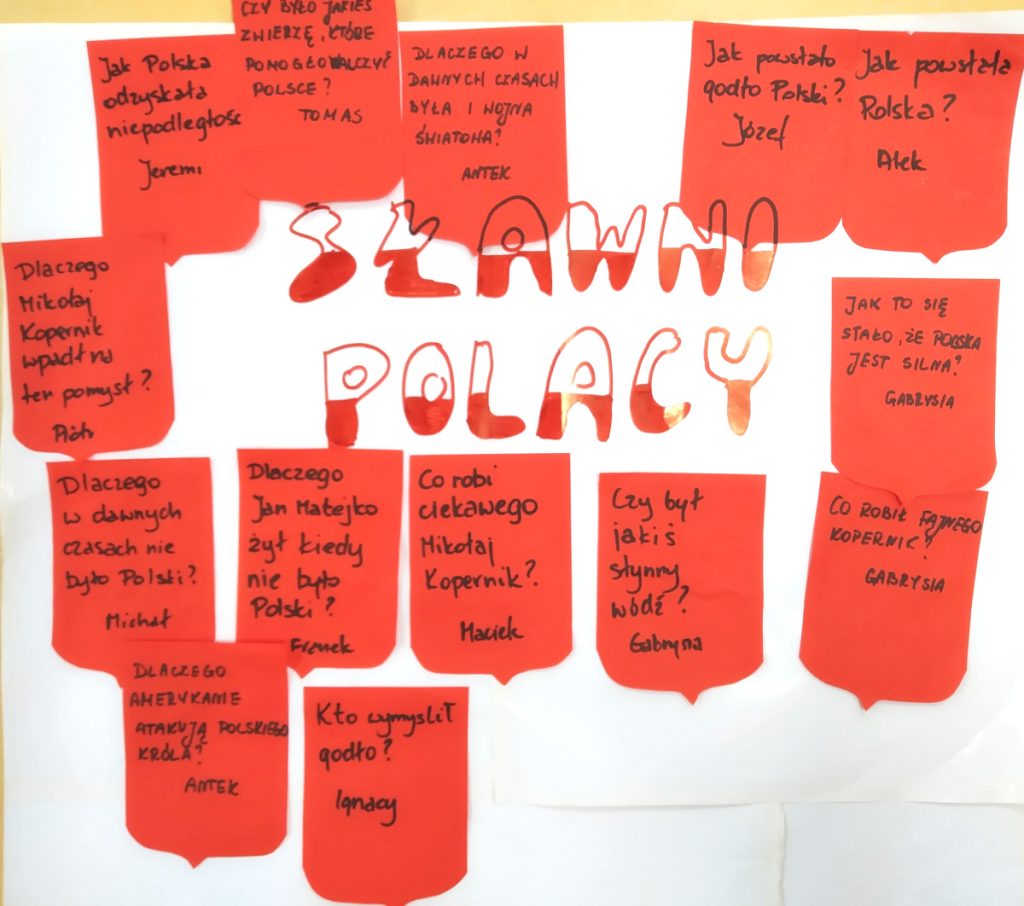 Jak Polska
odzyskała
niepodległość
Jeremi
CZY BYŁO JAKIEŚ
ZWIERZĘ, KTÓRE
POMOGŁO WALCZYĆ
POLSCE?
TOMAS
DLACZEGO W
DAWNYCH CZASACH
BYŁA I WOJNA
ŚWIATOWA?
ANTEK
Jak powstało
godło Polski?
Józef
Jak powstała
Polska?
Alek
SŁAWNI
POLACY
Dlaczego
Mikołaj
Kopernik
wpadł na
ten pomysł?
Piotr
JAK TO SIĘ
STAŁO, ŻE POLSKA
JEST SILNA?
GABRYSIA
Dlaczego
w dawnych
czasach nie
było Polski?
Michał
Dlaczego
Jan Matejko
żył kiedy
nie było
Polski?
Franek
Co robi
ciekawego
Mikołaj
Kopernik?
Maciek
Czy był
jakiś
słynny
wódz?
Gabrysia
CO ROBIŁ FAJNEGO
KOPERNIK?
GABRYSIA
DLACZEGO
AMERYKANIE
ATAKUJĄ POLSKIEGO
KRÓLA?
ANTEK
Kto wymyślił
godło?
Ignacy